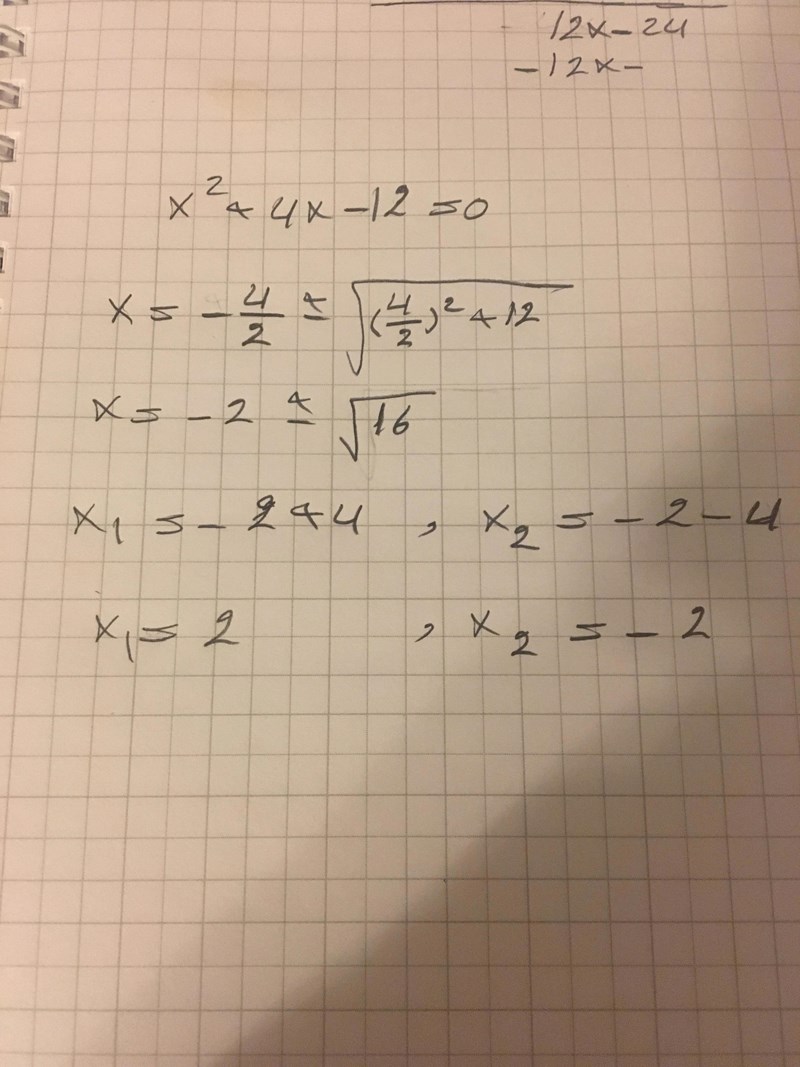 12x-24
-12x-
x²+4x-12=0
x=-4/2±√((4/2)²+12)
x=-2±√16
x₁=-2+4, x₂=-2-4
x₁=2, x₂=-2